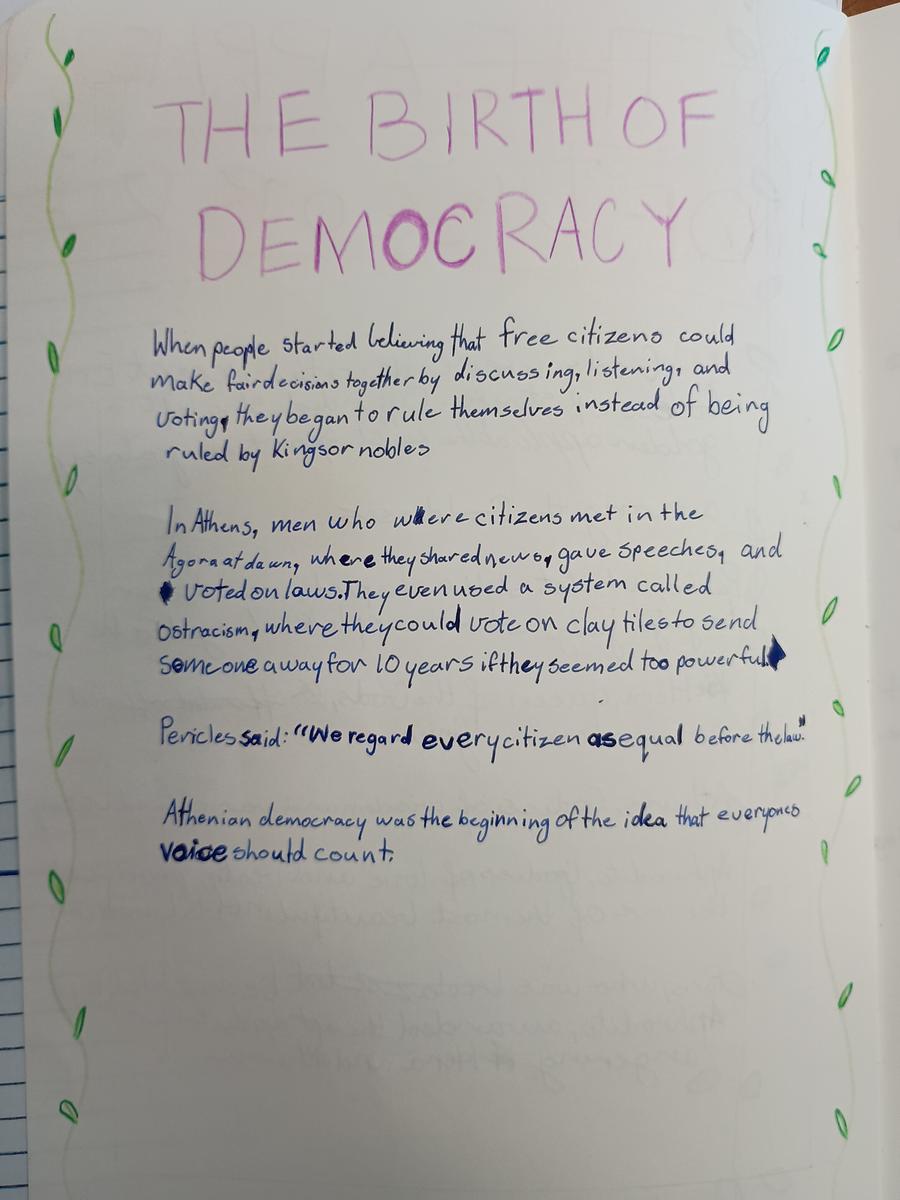 THE BIRTH OF
DEMOCRACY
When people started believing that free citizens could
make fair decisions together by discussing, listening, and
voting, they began to rule themselves instead of being
ruled by Kings or nobles
In Athens, men who where citizens met in the
Agora at dawn, where they shared news, gave speeches, and
voted on laws. They even used a system called
ostracism, where they could vote on clay tiles to send
someone away for 10 years if they seemed too powerful.
Pericles said: "We regard every citizen as equal before the law."
Athenian democracy was the beginning of the idea that everyones
voice should count.